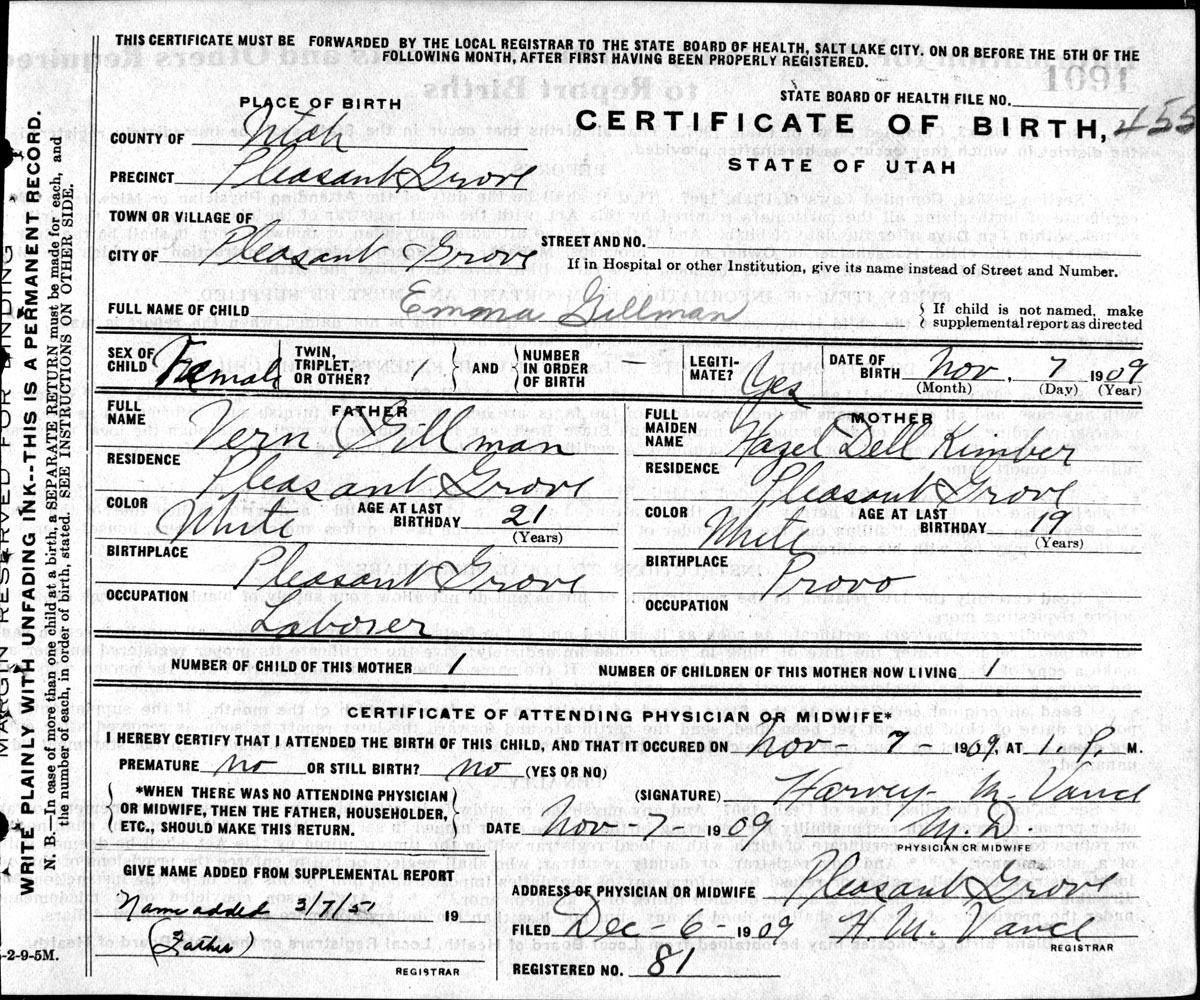 THIS CERTIFICATE MUST BE FORWARDED BY THE LOCAL REGISTRAR TO THE STATE BOARD OF HEALTH, SALT LAKE CITY. ON OR BEFORE THE 5TH OF THE
FOLLOWING MONTH, AFTER FIRST HAVING BEEN PROPERLY REGISTERED.
STATE BOARD OF HEALTH FILE NO.
PLACE OF BIRTH
CERTIFICATE OF BIRTH, 455
STATE OF UTAH
COUNTY OF Utah
PRECINCT Pleasant Grove
TOWN OR VILLAGE OF
CITY OF Pleasant Grove
STREET AND NO.
If in Hospital or other Institution, give its name instead of Street and Number.
FULL NAME OF CHILD Emma Gillman
If child is not named, make
supplemental report as directed
SEX OF
CHILD Female
TWIN,
TRIPLET,
OR OTHER?
AND
NUMBER
IN ORDER
OF BIRTH –
LEGITI-
MATE? Yes
DATE OF
BIRTH Nov, 7 1909
(Month) (Day) (Year)
FATHER
FULL
NAME Vern Gillman
RESIDENCE
Pleasant Grove
COLOR White
AGE AT LAST
BIRTHDAY 21
(Years)
BIRTHPLACE
Pleasant Grove
OCCUPATION
Laborer
MOTHER
FULL
MAIDEN
NAME Hazel Dell Kimber
RESIDENCE
Pleasant Grove
COLOR White
AGE AT LAST
BIRTHDAY 19
(Years)
BIRTHPLACE
Provo
OCCUPATION
NUMBER OF CHILD OF THIS MOTHER 1
NUMBER OF CHILDREN OF THIS MOTHER NOW LIVING 1
CERTIFICATE OF ATTENDING PHYSICIAN OR MIDWIFE*
I HEREBY CERTIFY THAT I ATTENDED THE BIRTH OF THIS CHILD, AND THAT IT OCCURED ON Nov 7 1909, AT 1 P M.
PREMATURE no OR STILL BIRTH? no (YES OR NO)
*WHEN THERE WAS NO ATTENDING PHYSICIAN
OR MIDWIFE, THEN THE FATHER, HOUSEHOLDER,
ETC., SHOULD MAKE THIS RETURN.
(SIGNATURE) Harvey M. Vance
DATE Nov-7- 1909 M.D.
PHYSICIAN OR MIDWIFE
GIVE NAME ADDED FROM SUPPLEMENTAL REPORT
Name added 3/7/57 19
(Father)
REGISTRAR
ADDRESS OF PHYSICIAN OR MIDWIFE Pleasant Grove
FILED Dec-6- 1909 H. M. Vance
REGISTRAR
REGISTERED NO. 81
MARGIN RESERVED FOR BINDING
WRITE PLAINLY WITH UNFADING INK--THIS IS A PERMANENT RECORD.
N. B.—In case of more than one child at a birth, a SEPARATE RETURN must be made for each, and
the number of each, in order of birth, stated. SEE INSTRUCTIONS ON OTHER SIDE.
-2-9-5M.